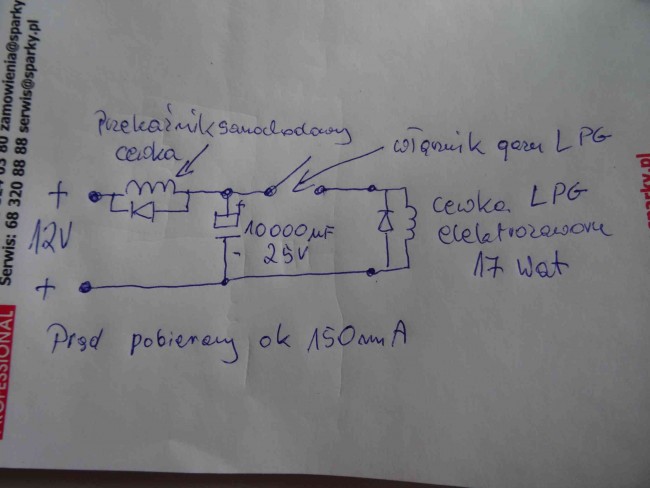 zamowienia@sparky.pl
Serwis: 68 320 88 88 serwis@sparky.pl
PROFESSIONAL
Przekaźnik samochodowy
cewka
włącznik gazu LPG
+
12V
+
+
10000µF
-
25V
cewka LPG
elektrozaworu
17 Wat
Prąd pobierany ok 150mA
sparky.pl